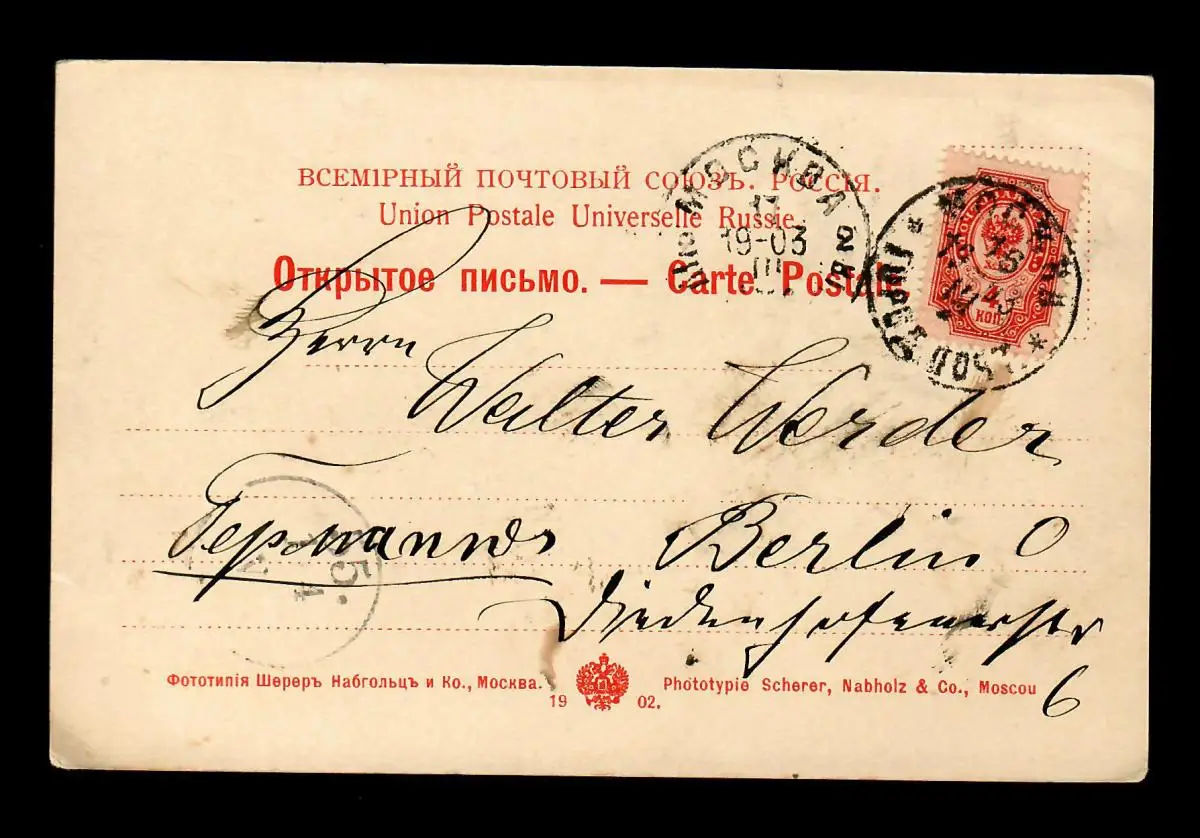 ВСЕМІРНЫЙ ПОЧТОВЫЙ СОЮЗЪ. РОССІЯ.
Union Postale Universelle Russie.
МОСКВА
11
19-03
III
Открытое письмо. — Carte Postale
4
КОП.
Herrn
Walter Werder
Германия
Berlin O
Diedenhofenerstr
6
5.
Фототипія Шереръ Набгольцъ и Ко., Москва.
1902.
Phototypie Scherer, Nabholz & Co., Moscou